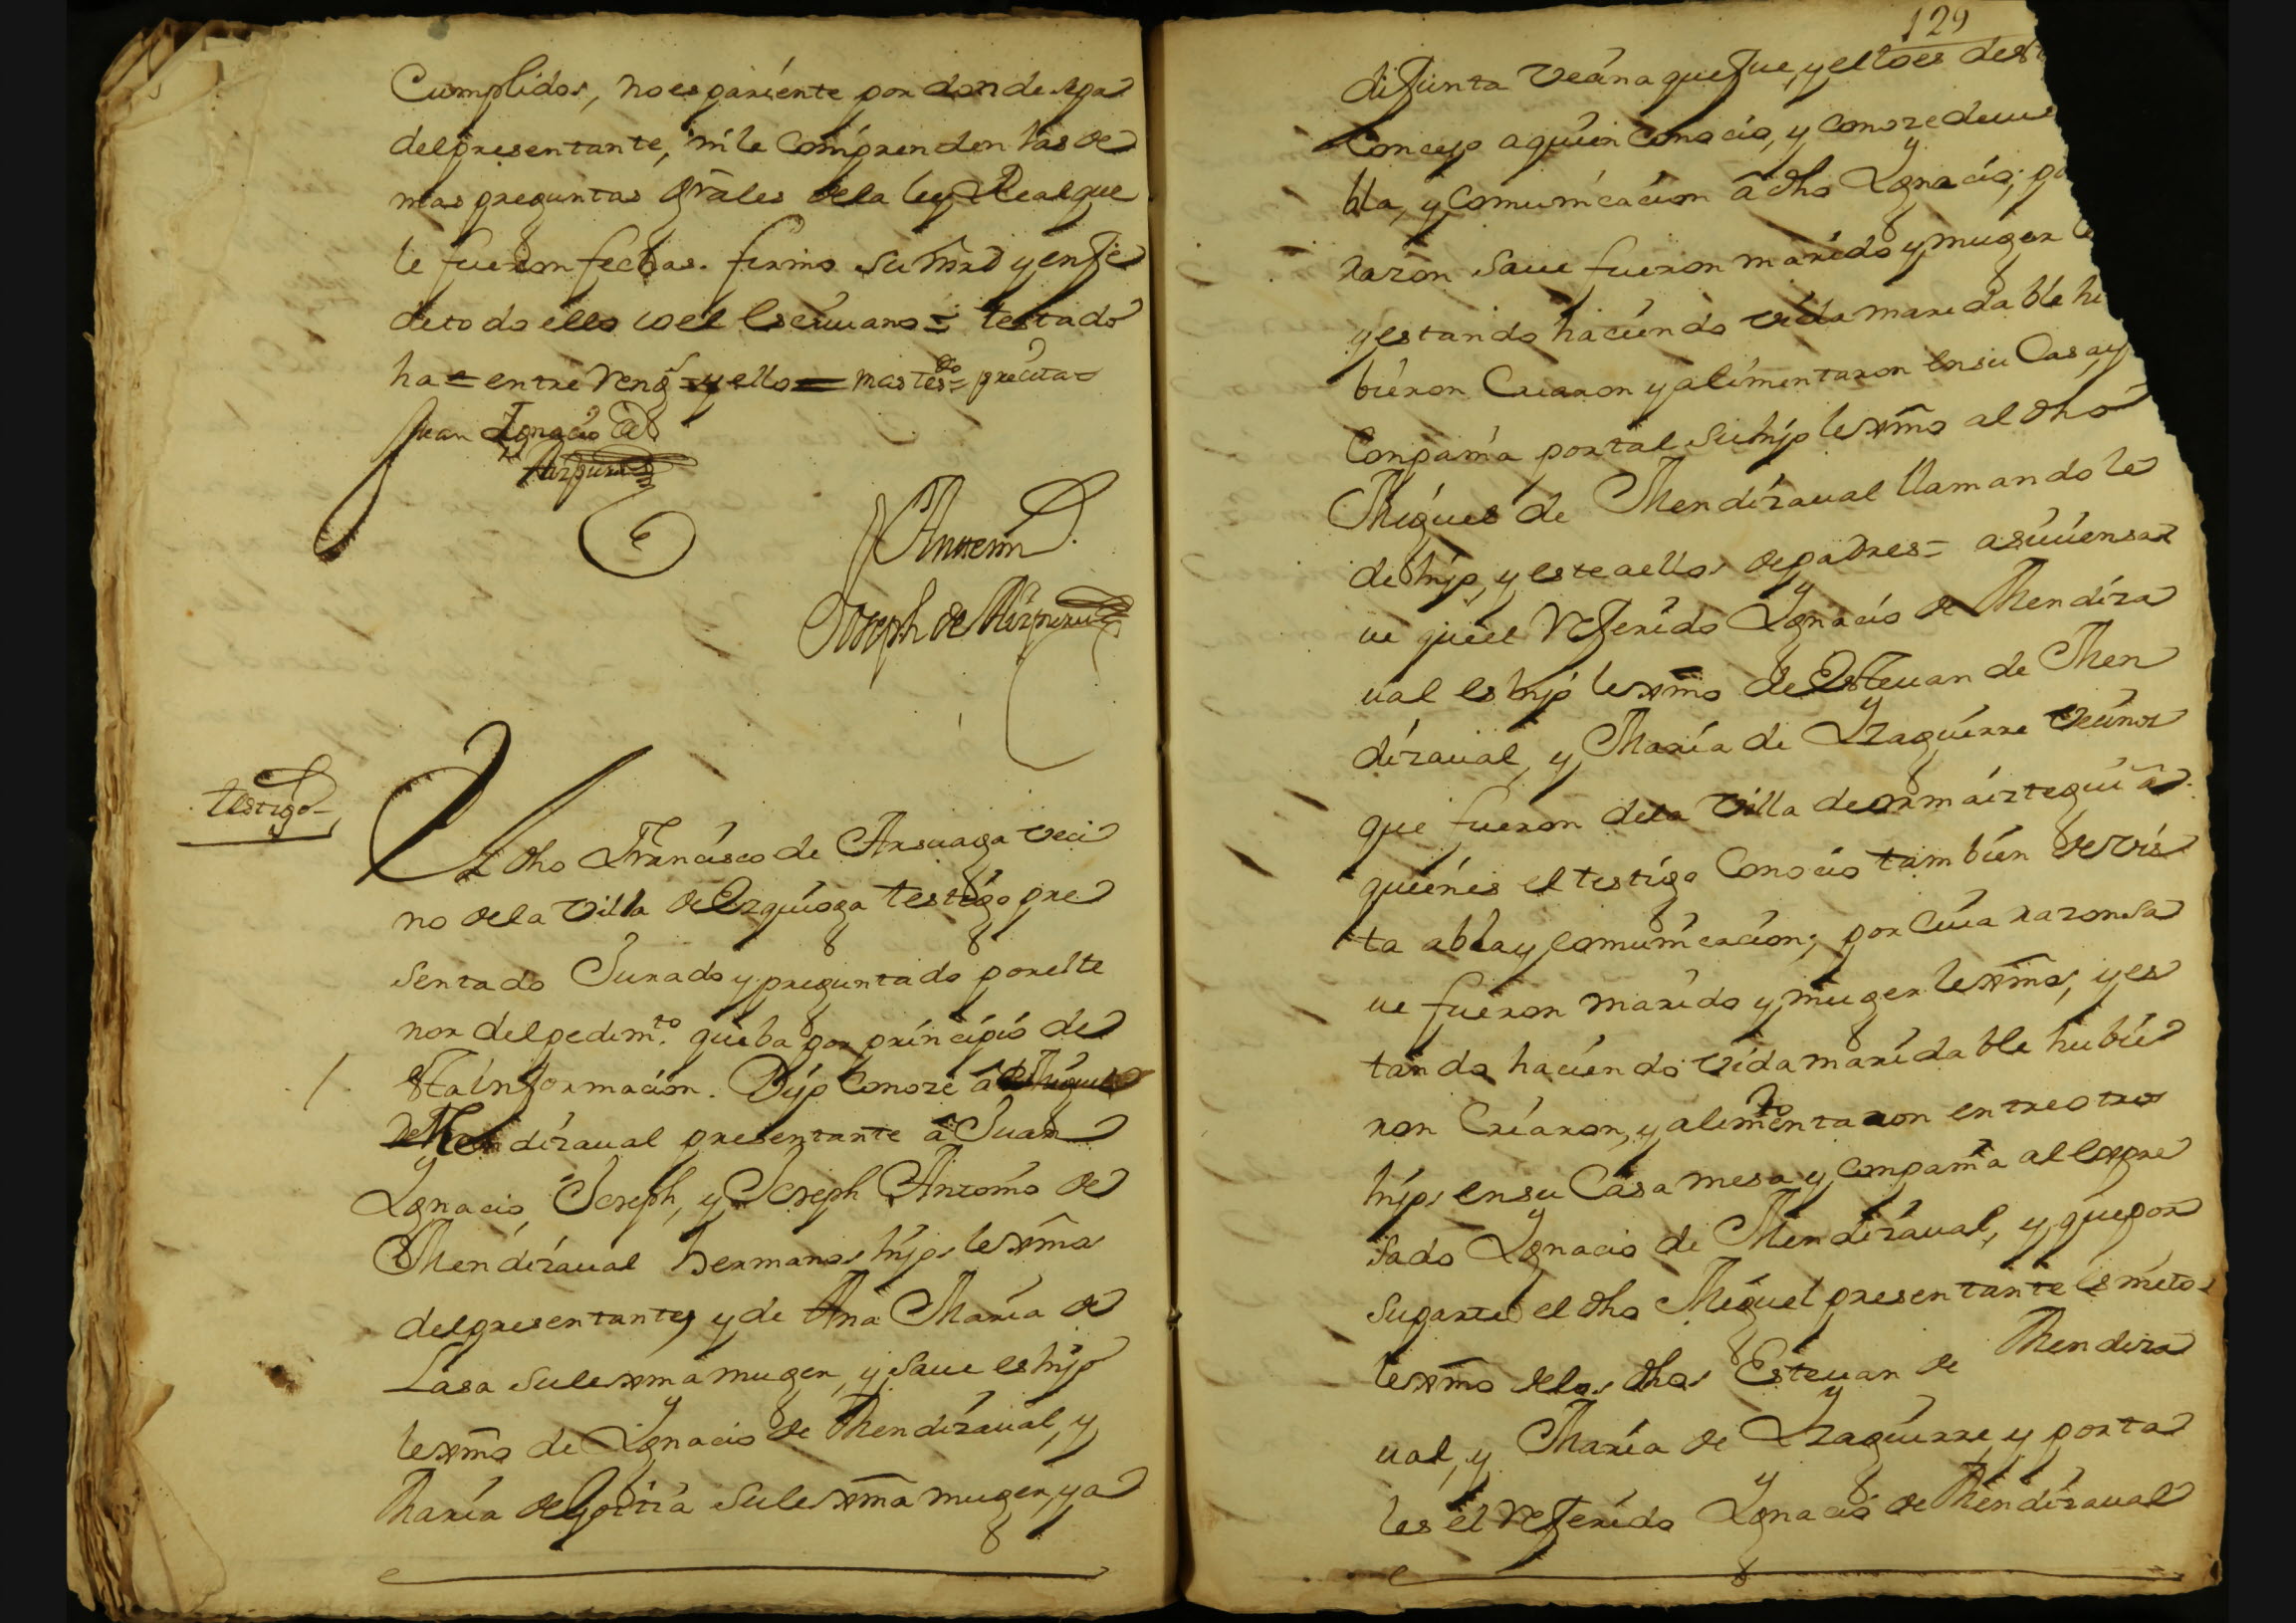 Cumplidos, no es pariente por donde sepa
del presentante, ni le Comprenden las de
mas preguntas grãles de la ley Real que
le fueron fechas. firmo su mrd y en fe
de todo ello io el Escriuano = testado
ha = entre reng.s = y ello = mas tes.do = precita =
Juan Ignacio de
Aizpuru
Antemi
Joseph de Aizpuru
testigo
El dho Francisco de Arsuaga veci
no de la Villa de Ezquioga testigo pre
sentado Jurado y preguntado por el te
nor del pedim.to que ba por principio de
esta informacion. Dijo Conoze â Miguel
de Mendizaual presentante â Juan
Ygnacio, Joseph, y Joseph Antonio de
Mendizaual hermanos hijos lexmos
del presentante, y de Ana Maria de
Lasa su lexma muger, y saue es hijo
lexmo de Ygnacio de Mendizaual, y
Maria de Goitia su lexma muger, ya
129
difunta vecina que fue, y el lo es
Concejo a quien Conocio, y Conoze de
bla, y Comunicacion â dho Ygnacio,
razon saue fueron marido y muger
y estando haciendo vida maridable
bieron Criaron y alimentaron en su Casa, y
Conpania por tal su hijo lexmo al dho
Miguel de Mendizaual llamandole
de hijo, y este a ellos de padres =
ue que el Referido Ygnacio de Mendiza
ual es hijo lexmo de Esteuan de Men
dizaual, y Maria de Yzaguirre vecinos
que fueron de la Villa de ormaiztegui â
quienes el testigo Conocio tambien de vis
ta abla y comunicacion; por Cuia razon sa
ue fueron marido y muger lexmos, y es
tando haciendo vida maridable hubie
ron Criaron, y alimentaron entre otros
hijos en su Casa mesa y Compania al expre
sado Ygnacio de Mendizaual, y que por
su parte el dho Miguel presentante es nieto
lexmo de los dhos Esteuan de Mendiza
ual, y Maria de Yzaguirre y por ta
les el Referido Ygnacio de Mendizaual